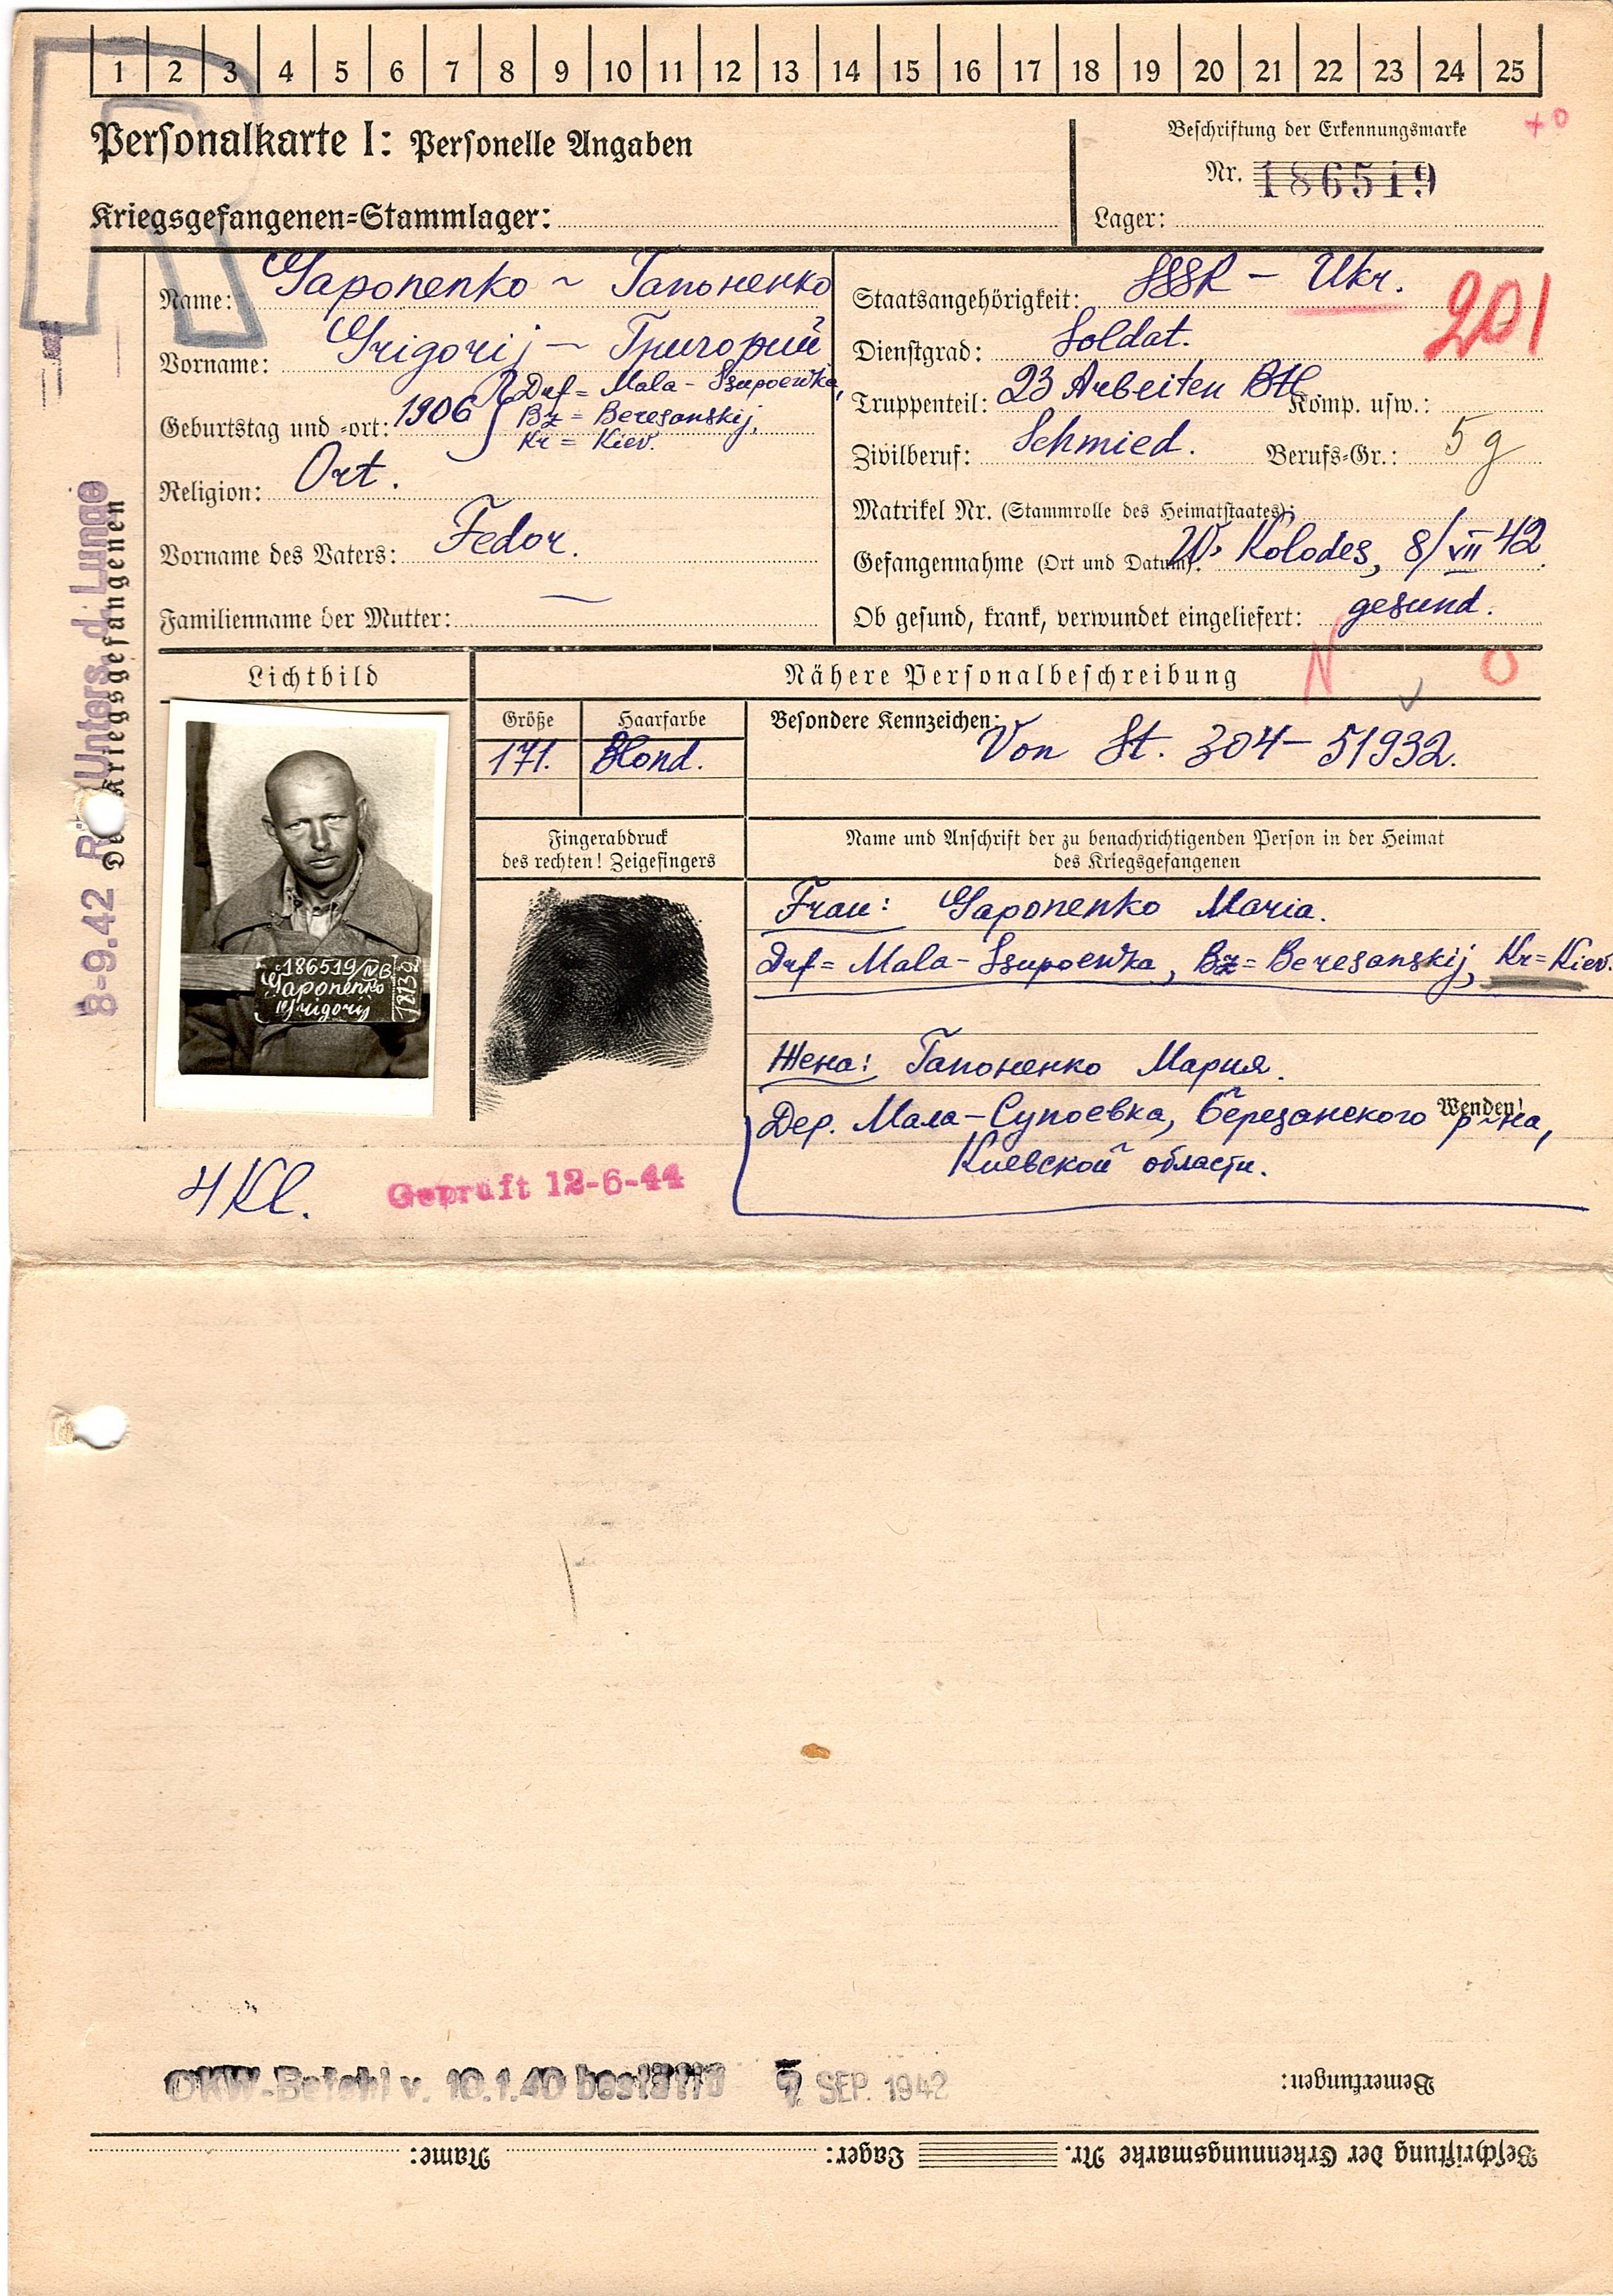 1 2 3 4 5 6 7 8 9 10 11 12 13 14 15 16 17 18 19 20 21 22 23 24 25
Personalkarte I: Personelle Angaben
Kriegsgefangenen=Stammlager:
Beschriftung der Erkennungsmarke
Nr. 186519
Lager:
+0
Name: Gaponenko ~ Гапоненко
Vorname: Grigorij — Григорий
Geburtstag und =ort: 1906 Drf = Mala - Ssupoewka,
Bz = Beresanskij,
Kr = Kiev.
Religion: Ort.
Vorname des Vaters: Fedor.
Familienname der Mutter: —
Staatsangehörigkeit: SSSR — Ukr.
201
Dienstgrad: Soldat.
Truppenteil: 23 Arbeiten Btl Komp. usw.:
Zivilberuf: Schmied. Berufs=Gr.: 5 g
Matrikel Nr. (Stammrolle des Heimatstaates):
Gefangennahme (Ort und Datum): W. Kolodes, 8/VII 42.
Ob gesund, krank, verwundet eingeliefert: gesund.
N O
8-9.42 Unters. d. Lunge
Des Kriegsgefangenen
Lichtbild
Nähere Personalbeschreibung
Größe
171.
Haarfarbe
Blond.
Besondere Kennzeichen:
Von St. 304 — 51932.
Fingerabdruck
des rechten! Zeigefingers
Name und Anschrift der zu benachrichtigenden Person in der Heimat
des Kriegsgefangenen
186519/IVB
Gaponenko
Grigorij
Frau: Gaponenko Maria.
Drf = Mala - Ssupoewka, Bz = Beresanskij, Kr = Kiev.
Жена: Гапоненко Мария.
Дер. Мала — Супоевка, Березанского р-на,
Киевской области.
Wenden!
4 Kl.
Geprüft 12-6-44
OKW-Befehl v. 10.1.40 bestätigt 7. SEP. 1942
Bemerkungen:
Beschriftung der Erkennungsmarke Nr. Lager: Name: